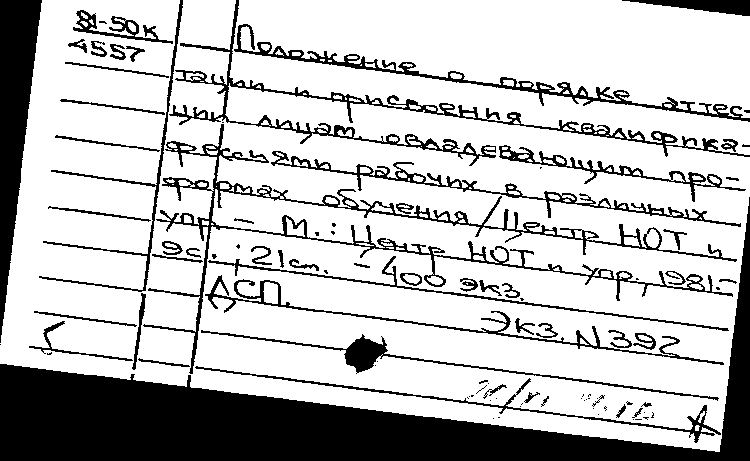 81-50к
4557
Положение о порядке аттес-
тации и присвоения квалифика-
ции лицам, овладевающим про-
фессиями рабочих в различных
формах обучения / Центр НОТ и
упр. – М.: Центр НОТ и упр., 1981.–
9с.; 21см. – 400 экз.
ДСП.
Экз. N 392